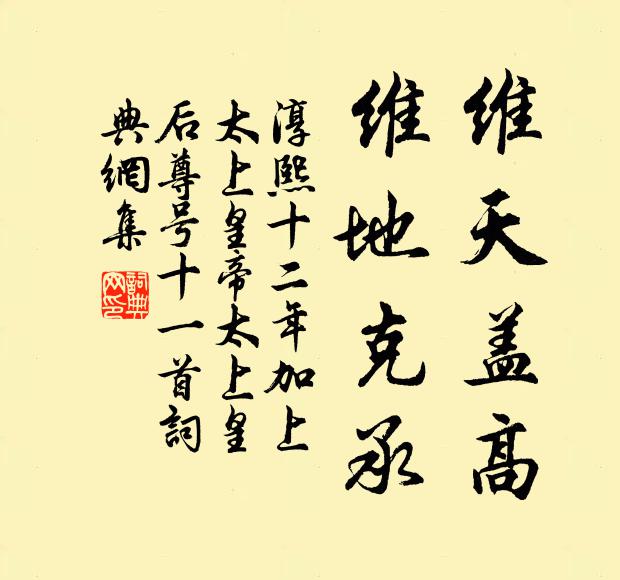 維天盖高
維地克承
淳熙十二年加上
太上皇帝太上皇
后尊号十一首詞
典網集
詞典网印